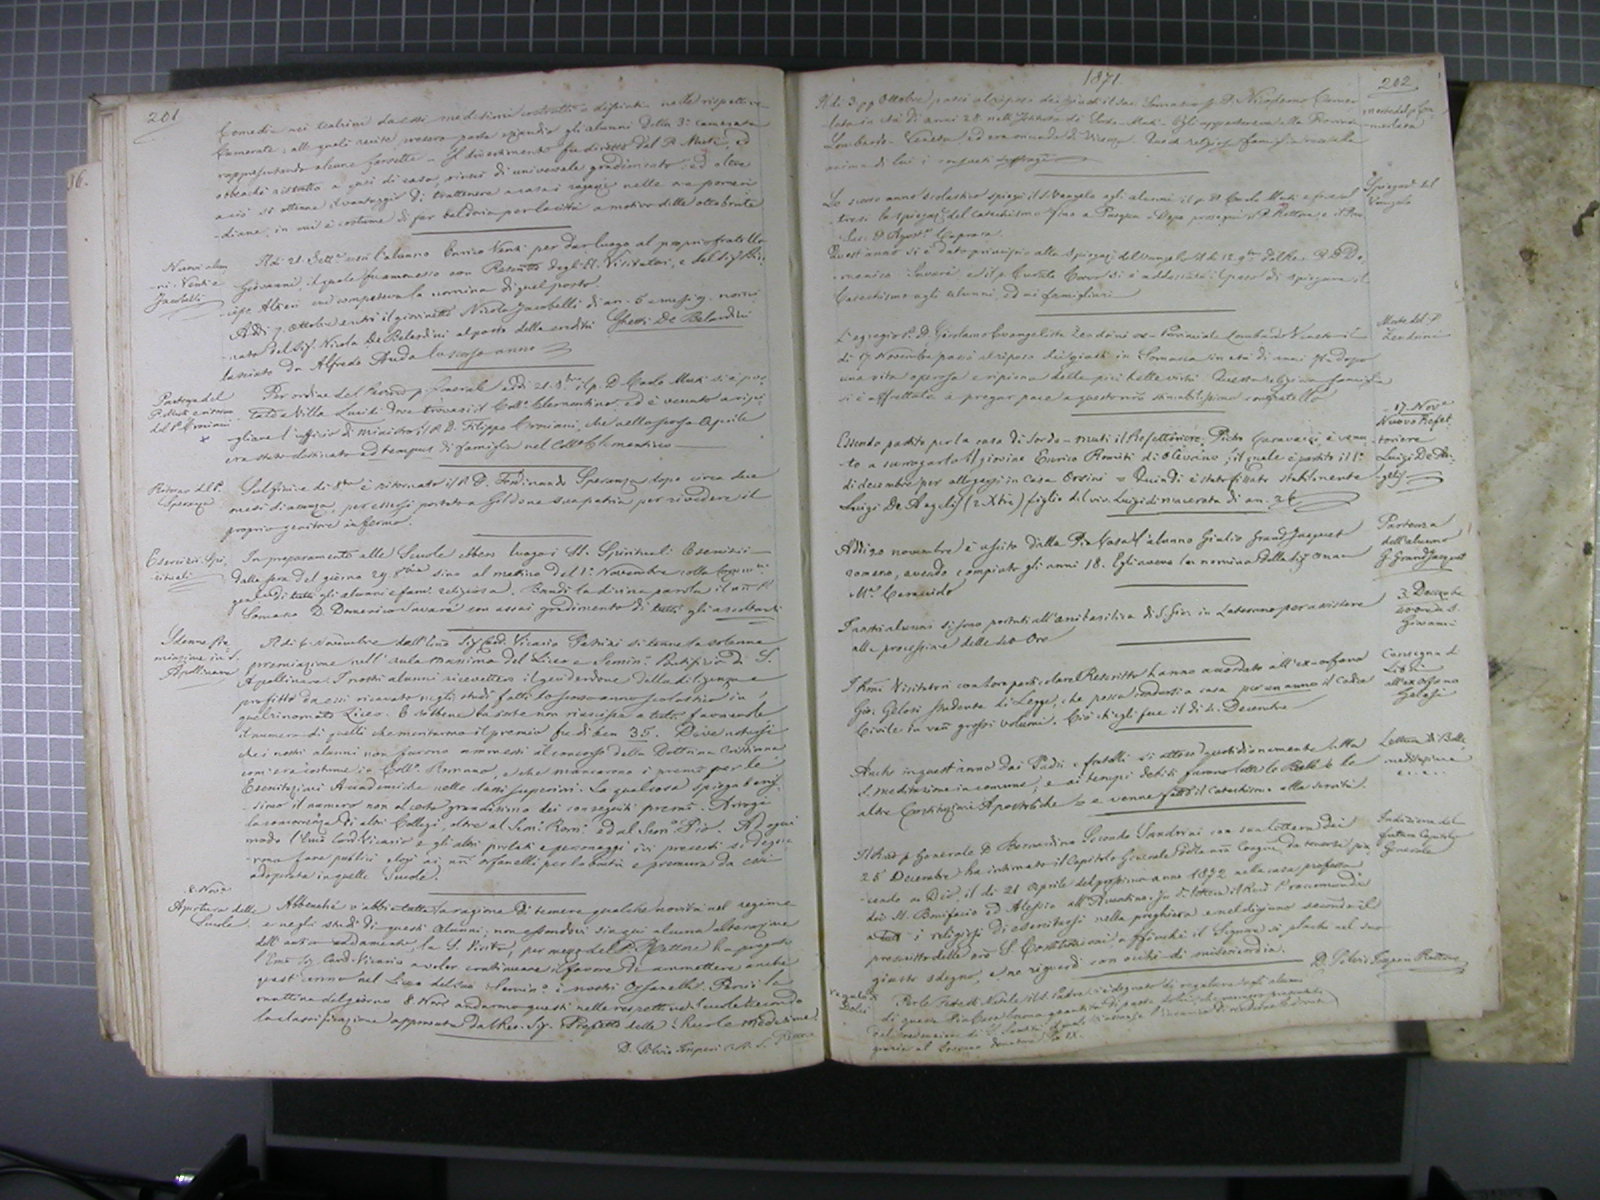 201
Comedia nei teatrini da essi medesimi costrutti o disfatti nelle rispettive
Camerate, alle quali recite presero parte eziandio gli alunni della 3ª Camerata
rappresentando alcune farsette - Il divertimento fu diretto dal P. Muti, ed
ristretto a quei di casa, riuscì di universale gradimento; ed oltre
a ciò si ottenne il vantaggio di trattenere a casa i ragazzi nelle ore pomeri
diane, in cui è costume di far baldoria per la città a motivo delle ottobrate
Nuovi alun
ni Venti e
Jacobelli
A di 21. Sett.e uscì l'alunno Enrico Venti per dar luogo al proprio fratello
Giovanni, il quale fu ammesso con Rescritto degli Il. Visitatori, e del Sig. Prin
cipe Altieri cui competeva la nomina di quel posto.
Addì 7. ottobre entrò il giovinetto Nicola Jacobelli di an. 6 e mesi 9. nomi
nato dal Sig. Nicola De Belardini al posto della eredità Ghetti De Belardini
lasciato da Alfredo Auda lo scorso anno
Partenza del
P. Muti e ritorno
del P. Ermiani
Per ordine del Rev.mo P. Generale addì 21. 8bre il p. D. Carlo Muti si è por
tato a Villa Lucidi dove trovasi il Coll.o Clementino, ed è venuto a ripi
gliare l'ufficio di ministro il P. D. Filippo Ermiani, che nello scorso Aprile
era stato destinato ad tempus di famiglia nel Coll.o Clementino
Ritorno del P.
Speranza
Sul finire di 8bre è ritornato il P. D. Ferdinando Speranza dopo circa due
mesi di assenza, per essersi portato a sua patria per rivedere il
proprio genitore infermo.
Esercizi Spi
rituali
In preparamento alle Scuole ebbero luogo i SS. Spirituali Esercizi
dalla sera del giorno 29. 8bre sino al mattino del 1º Novembre colla Comunione
generale di tutti gli alunni e fami. religiosa. Bandì la divina parola il nro P.
Somasco D. Domenico Savarè con assai gradimento di tutti gli ascoltanti
Solenne Pre
miazione in S.
Apollinare
A di 6 Novembre dall'Emo Sig. Card. Vicario Patrizi si tenne la solenne
premiazione nell'aula massima del Liceo e Semin.o Pontificio di S.
Apollinare. I nostri alunni ricevettero il guiderdone della diligenza e
profitto da essi ricavato negli studi fatti lo scorso anno scolastico in
quel rinomato Liceo. E sebbene la sorte non riuscisse a tutti favorevole
il numero di quelli che meritarono il premio fu di ben 35. Deve notarsi
che i nostri alunni non furono ammessi al concorso della Dottrina Cristiana
com'era costume in Coll.o Romano, e che mancarono i premi per le
Esercitazioni Accademiche nelle classi superiori. La qual cosa spiega benis
simo il numero non certo grandissimo dei conseguiti premi. Arroge
la concorrenza di altri Collegi, oltre al Sem. Rom. ed al Sem.o Pio. Ad ogni
modo l'Emo Card. Vicario e gli altri prelati e personaggi ivi presenti si degna
rono fare pubblici elogi ai nri orfanelli per la bontà e premura da essi
adoprata in quelle Scuole.
8. Nov.e
Apertura delle
Scuole
Abbenchè v'abbia tutta la ragione di temere qualche novità nel regime
e negli studi di questi alunni, non essendovi sin qui alcuna alterazione
dell'antico andamento, la S. Visita, per mezzo del P. Rettore ha pregato
l'Emo Sig. Card. Vicario a voler continuare il favore di ammettere anche
quest'anno nel Liceo del suo Semin.o i nostri Orfanelli. Perciò la
mattina del giorno 8. Nov. andarono questi nelle rispettive Scuole secondo
la classificazione approvata dal Rev. Sig. Prefetto delle Scuole medesime.
D. Silvio Imperi C.R.S. Rettore
1871
202
A di 3 pp Ottobre, passò al riposo dei giusti il
in età di anni 28 nell'Istituto di Sordo-Muti. Egli apparteneva alla Provincia
Lombardo-Veneta, ed era oriundo di Vicenza. Questa religiosa famiglia
anima di lui i consueti suffragi
Spiegaz.e del
Vangelo
Lo scorso anno scolastico spiegò il S. Vangelo agli alunni il p. D. Carlo Muti
la spiegaz. del Catechismo fino a Pasqua. Dopo proseguì il P. Rettore e il
Quest'anno si è dato principio alla Spiegaz. del Vangelo il dì 12. 9bre dal Rev. P. D. Do
menico Savarè ed il p. Curato si è addossato il peso di spiegare il
Catechismo agli alunni, ed ai famigliari
Morte del P.
Zendrini
L'egregio P. D. Girolamo Evangelista Zendrini ex-Provinciale Lombardo Veneto il
dì 17 Novembre passò al riposo dei giusti in Somasca in età di anni dopo
una vita operosa e ripiena delle più belle virtù. Questa religiosa famiglia
si è affrettata a pregar pace a questo nostro stimabilissimo confratello
17. Nov.e
Nuovo Refet
toriere
Luigi De An
gelis
Essendo partito per la casa di Sordo-muti il Refettoriere Pietro Garavazzi è venu
to a surrogarlo il giovine Enrico Romiti di Olevano; il quale è partito il 1º
di decembre per allogarsi in Casa Orsini = Quindi è stato fissato stabilmente
Luigi De Angelis (2. Xbre) figlio del vivo Luigi di Macerata di an. 26
Partenza
dell'alunno
G. Grandjacquet
Addì 20 novembre è uscito dalla Pia Casa l'alunno Giulio Grandjacquet
romano, avendo compiuto gli anni 18. Egli aveva la nomina dalla Sig.a Anna
M.a Caracciolo
3. Decembre
40 ore a S.
Giovanni
I nostri alunni si sono portati all'arcibasilica di S. Giov. in Laterano per assistere
alla processione delle 40 Ore
Consegna di
Libri
all'ex orfano
Gelosi
I Rmi Visitatori con loro particolare Rescritto hanno accordato all'ex-orfano
Gio. Gelosi studente di Legge, che possa tenersi a casa per un anno il Codice
Civile in vari grossi volumi. Ciò ch'egli fece il dì 4. Decembre
Lettura di Bolle
meditazione
e . . . .
Anche in quest'anno dai Padri e fratelli si attese quotidianamente alla
S. meditazione in comune, e ai tempi debiti furono lette le Bolle e le
altre Costituzioni Apostoliche = e venne fatto il Catechismo alla servitù.
Indizione del
futuro Capitolo
Generale
Il Rmo p. Generale D. Bernardino Secondo Sandrini con sua lettera dei
25 Decembre ha intimato il Capitolo Generale della nra Congne da tenersi, pia
cendo a Dio, il dì 21 Aprile del prossimo anno 1872 nella casa professa
dei SS. Bonifacio ed Alessio all'Aventino. In d.a lettera il Rmo P. raccomanda
a tutti i religiosi di esercitarsi nella preghiera e nel digiuno secondo il
prescritto delle nre S. Costituzioni affinchè il Signore si plachi nel suo
giusto sdegno, e ne riguardi con occhi di misericordia.
D. Silvio Imperi Rettore
Regalo di
Dolci
Per le Feste di Natale il S. Padre si è degnato di regalare agli alunni
di questa Pia Casa buona quantità di paste dolci,
grazie al Sovrano donatore Pio IX.